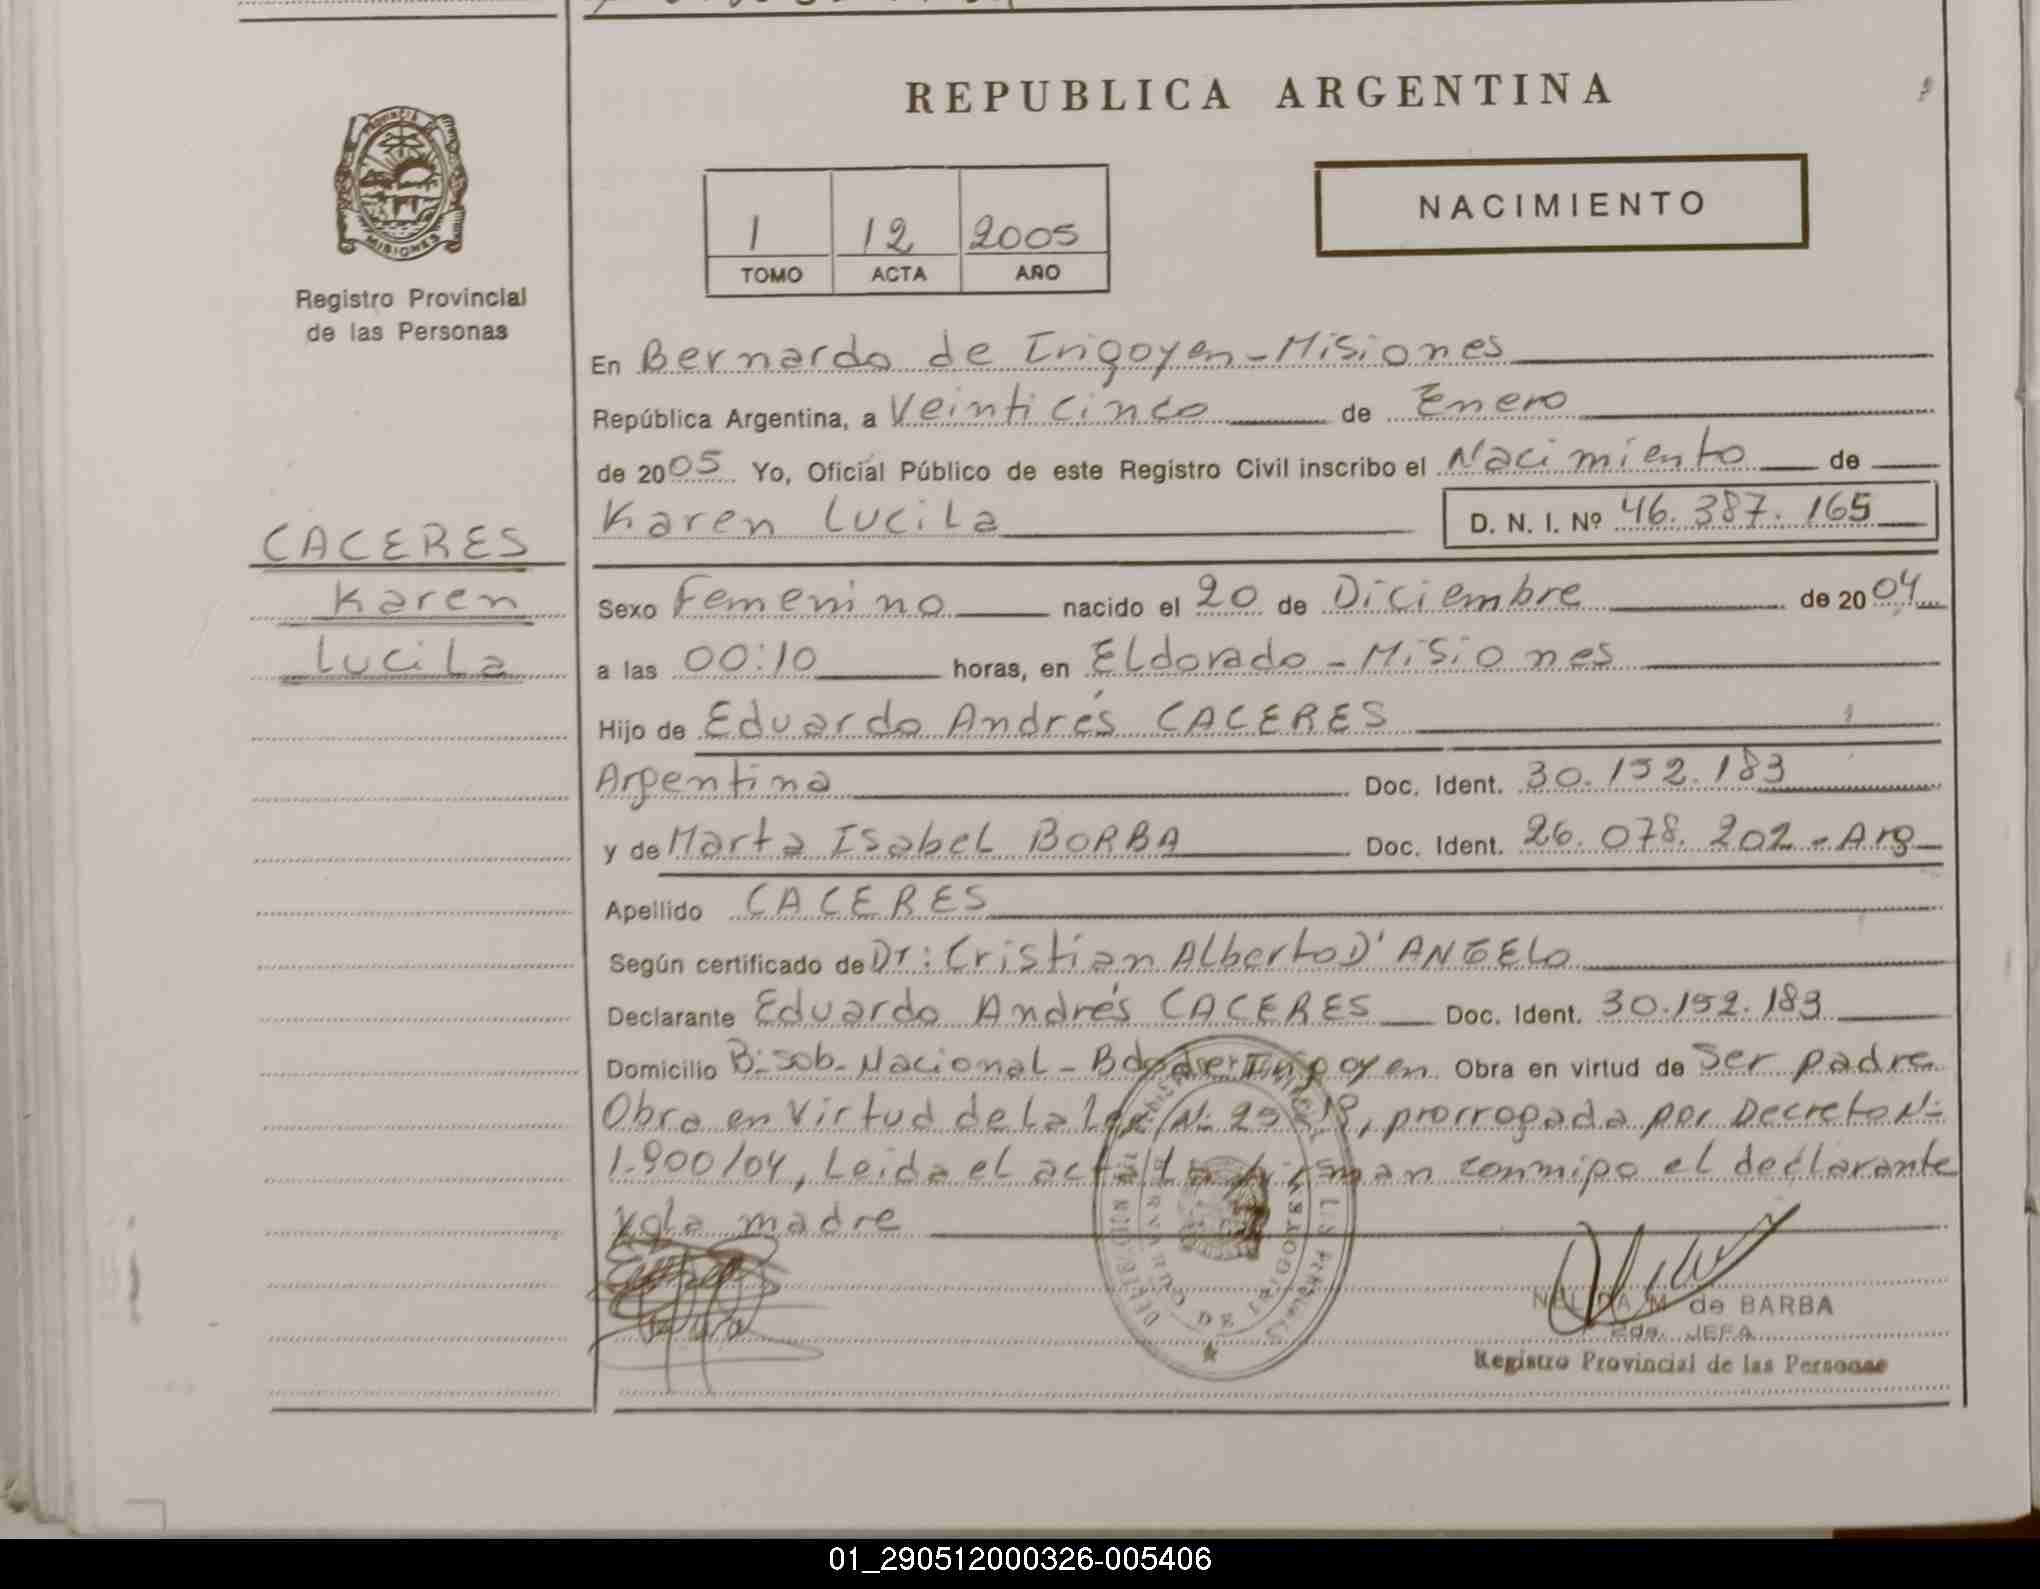 REPUBLICA ARGENTINA
PROVINCIA DE
MISIONES
Registro Provincial
de las Personas
1 12 2005
TOMO ACTA AÑO
NACIMIENTO
En Bernardo de Irigoyen - Misiones
República Argentina, a Veinticinco de Enero
de 2005 Yo, Oficial Público de este Registro Civil inscribo el Nacimiento de
Karen Lucila D. N. I. Nº 46.387.165
CACERES
Karen
Lucila
Sexo Femenino nacido el 20 de Diciembre de 2004
a las 00:10 horas, en Eldorado - Misiones
Hijo de Eduardo Andrés CACERES
Argentina Doc. Ident. 30.152.183
y de Marta Isabel BORBA Doc. Ident. 26.078.202 - Arg
Apellido CACERES
Según certificado de Dr: Cristian Alberto D'ANGELO
Declarante Eduardo Andrés CACERES Doc. Ident. 30.152.183
Domicilio B: Sob. Nacional - Bdo de Irigoyen Obra en virtud de Ser padre
Obra en Virtud de La Ley N: prorrogada por Decreto N:
1.900/04, Leida el acta La firman conmigo el declarante
y la madre
NELIDA M. de BARBA
2da. JEFA
Registro Provincial de las Personas
01_290512000326-005406